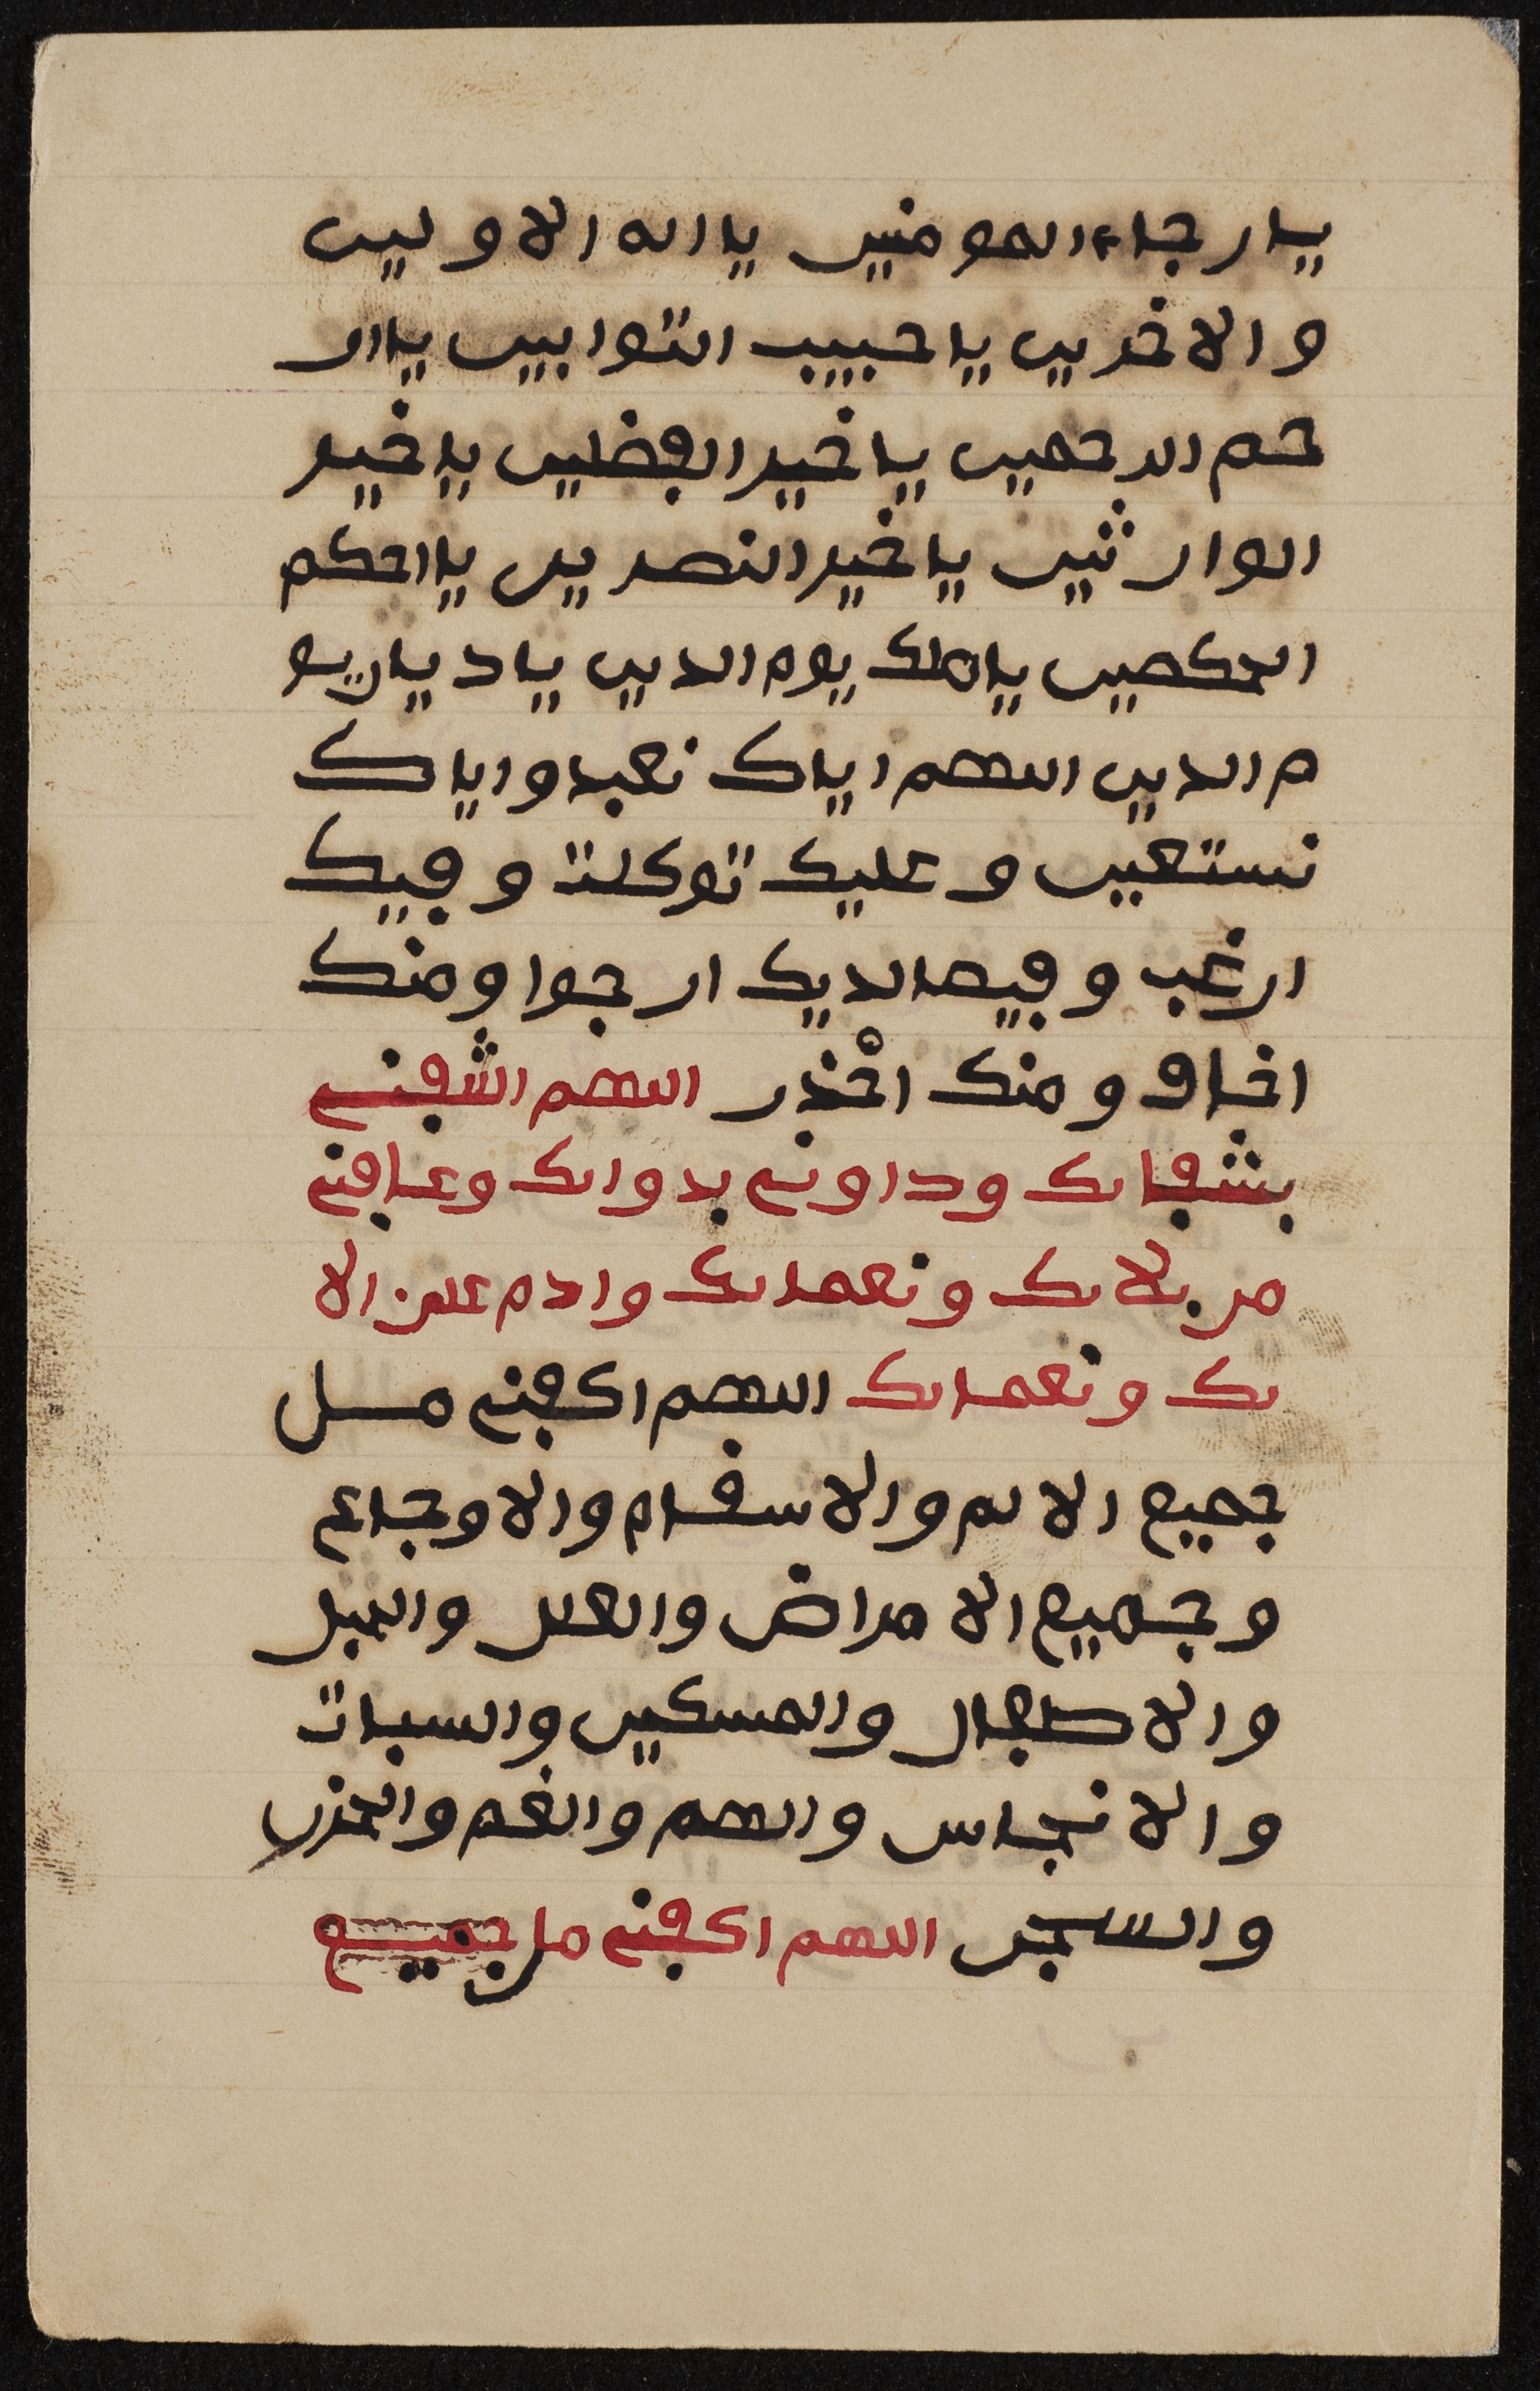 يا رجاء المومنين يا اله الاولين
والاخرين يا حبيب التوابين يا ار
حم الرحمين يا خير الفضلين يا خير
الوارثين يا خير النصرين يا احكم
الحكمين يا ملك يوم الدين يا ديار يو
م الدين اللهم اياك نعبد واياك
نستعين وعليك توكلت وفيك
ارغب وفيما لديك ارجوا ومنك
اخاف ومنك احْذر اللهم اشفني
بشفايك وداوني بدوايك وعافني
من بلايك ونعمايك وادم علي الا
يك ونعمايك اللهم اكفني من
جميع الالم والاسقام والاوجاع
وجميع الامراض والعلل والحبل
والاطفال والمسكين والسبات
والانجاس والهم والغم والحزن
والسجن اللهم اكفني من جميع